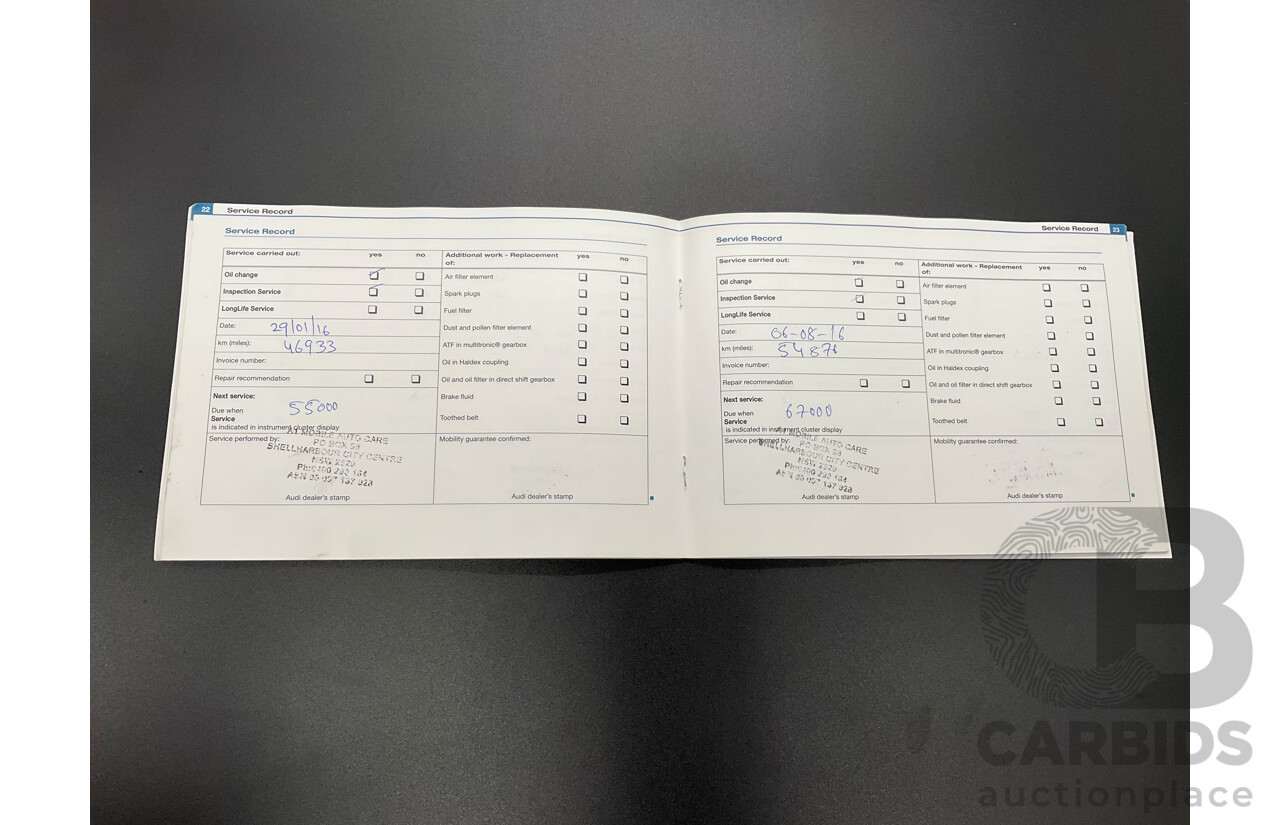 22 Service Record
Service Record
Service carried out: yes no
Oil change
Inspection Service
LongLife Service
Date: 29/01/16
km (miles): 46933
Invoice number:
Repair recommendation
Next service:
Due when 55000
Service
is indicated in instrument cluster display
Service performed by:
AT MOBILE AUTO CARE
PO BOX 93
SHELLHARBOUR CITY CENTRE
NSW 2529
Audi dealer's stamp
Additional work - Replacement of: yes no
Air filter element
Spark plugs
Fuel filter
Dust and pollen filter element
ATF in multitronic® gearbox
Oil in Haldex coupling
Oil and oil filter in direct shift gearbox
Brake fluid
Toothed belt
Mobility guarantee confirmed:
Audi dealer's stamp
Service Record 23
Service Record
Service carried out: yes no
Oil change
Inspection Service
LongLife Service
Date: 06-08-16
km (miles): 54876
Invoice number:
Repair recommendation
Next service:
Due when 67000
Service
is indicated in instrument cluster display
Service performed by:
MOBILE AUTO CARE
PO BOX 93
SHELLHARBOUR CITY CENTRE
NSW 2529
Audi dealer's stamp
Additional work - Replacement of: yes no
Air filter element
Spark plugs
Fuel filter
Dust and pollen filter element
ATF in multitronic® gearbox
Oil in Haldex coupling
Oil and oil filter in direct shift gearbox
Brake fluid
Toothed belt
Mobility guarantee confirmed:
Audi dealer's stamp
CB
CARBIDS
auctionplace